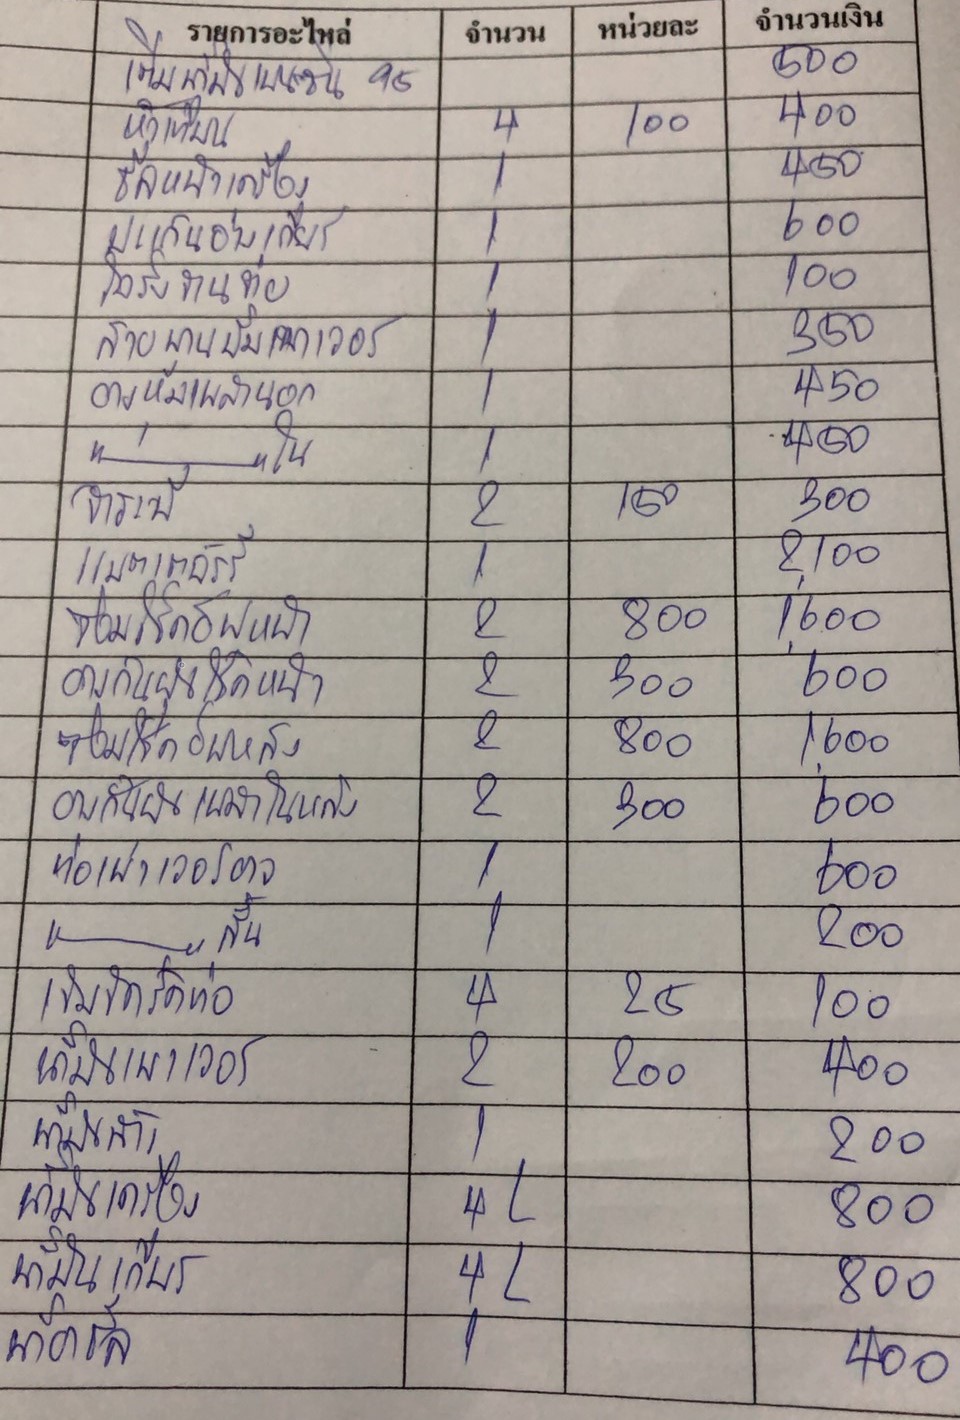 รายการอะไหล่ จำนวน หน่วยละ จำนวนเงิน
เติมน้ำมันเบนซิน 95 500
หัวเทียน 4 100 400
ซีลหน้าเครื่อง 1 450
ปะเก็นอ่างเกียร์ 1 600
โอริงจานจ่าย 1 100
สายพานปั๊มเพาเวอร์ 1 350
ยางหุ้มเพลานอก 1 450
"———" ใน 1 450
จาระบี 2 150 300
แบตเตอรี่ 1 2,100
ซ่อมโช๊คอัพหน้า 2 800 1,600
ยางกันฝุ่นโช๊คหน้า 2 300 600
ซ่อมโช๊คอัพหลัง 2 800 1,600
ยางกันฝุ่น หลัง 2 300 600
ท่อเพาเวอร์ยาว 1 600
"———" สั้น 1 200
เข็มขัดรัดท่อ 4 25 100
น้ำมันเพาเวอร์ 2 200 400
น้ำมัน 1 200
น้ำมันเครื่อง 4 L 800
น้ำมันเกียร์ 4 L 800
น้ำยาซีล 1 400